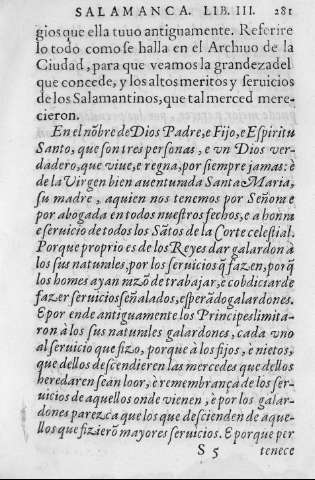 SALAMANCA. LIB. III. 281
gios que ella tuuo antiguamente. Referire
lo todo como se halla en el Archiuo de la
Ciudad, para que veamos la grandeza del
que concede, y los altos meritos y seruicios
de los Salamantinos, que tal merced mere-
cieron.
En el nõbre de Dios Padre, e Fijo, e Espiritu
Santo, que son tres personas, e vn Dios ver-
dadero, que viue, e regna, por siempre jamas: è
de la Virgen bien auenturada Santa Maria,
su madre, a quien nos tenemos por Señora e
por abogada en todos nuestros fechos, e a honra
e seruicio de todos los Sãtos de la Corte celestial.
Porque proprio es de los Reyes dar galardon à
los sus naturales, por los seruicios q̃ fazen, por q̃
los homes ayan razõ de trabajar, e cobdiciar de
fazer seruicios señalados, esperãdo galardones.
E por ende antiguamente los Principes limita-
ron à los sus naturales galardones, cada vno
al seruicio que fizo, porque à los fijos, e nietos,
que dellos descendieren las mercedes que dellos
heredaren sean loor, è remembrança de los ser-
uicios de aquellos onde vienen, è por los galar-
dones parezca que los que descienden de aque-
llos que fizierõ mayores seruicios. E porque per
S 5 tenece